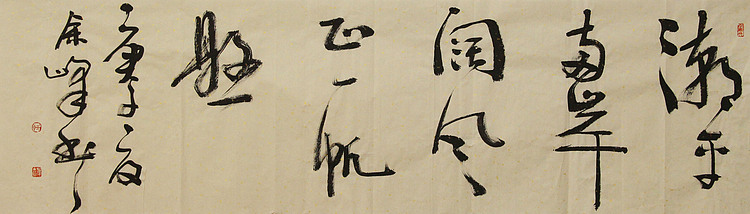 潮平
两岸
阔风
正一帆
悬
庚子夏
余峰书